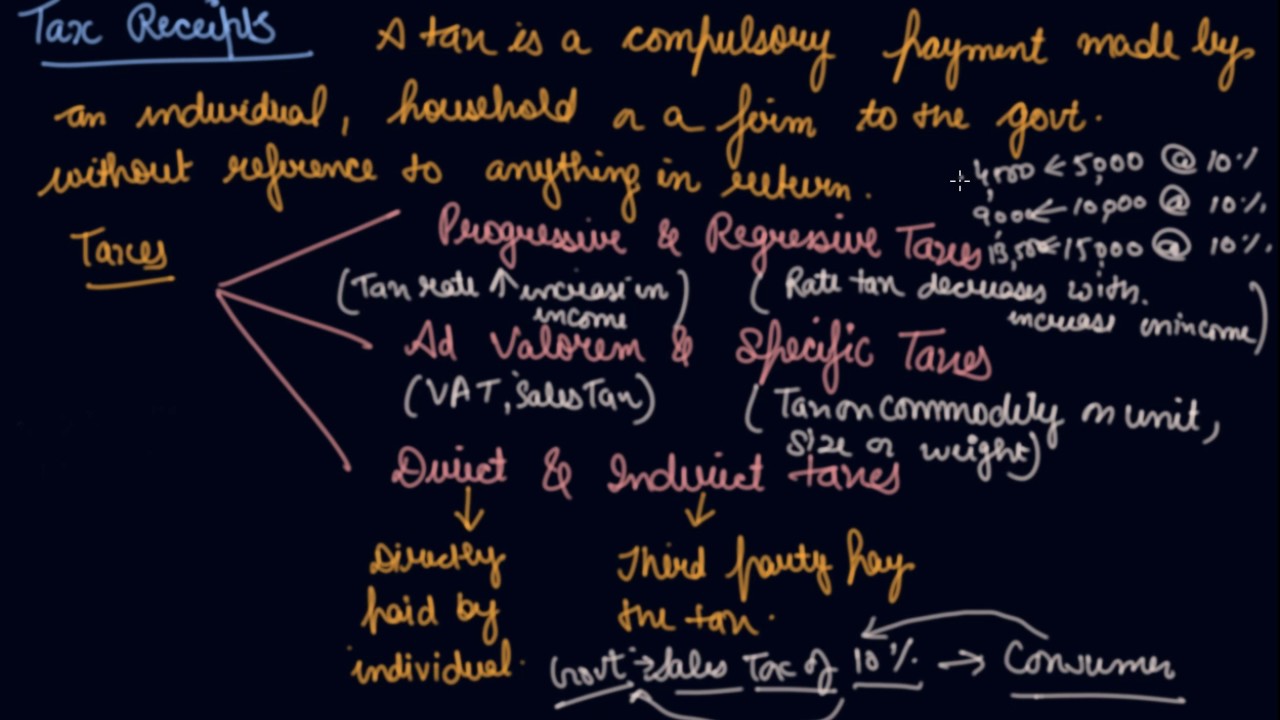 Tax Receipts A tax is a compulsory payment made by
an individual, household or a firm to the govt.
without reference to anything in return.
4,500 ← 5,000 @ 10%
9000 ← 10,000 @ 10%
13,500 ← 15,000 @ 10%
Taxes
Progressive & Regressive Taxes
(Tax rate ↑ increase in income)
(Rate tax decreases with increase in income)
Ad Valorem & Specific Taxes
(VAT, Sales Tax)
(Tax on commodity on unit,
size or weight)
Direct & Indirect taxes
Directly
paid by
individual.
Third party pay
the tax.
Govt → Sales Tax of 10% → Consumer